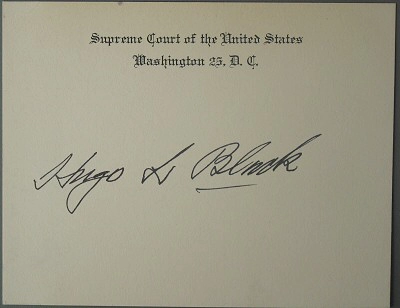 Supreme Court of the United States
Washington 25, D. C.
Hugo L Black